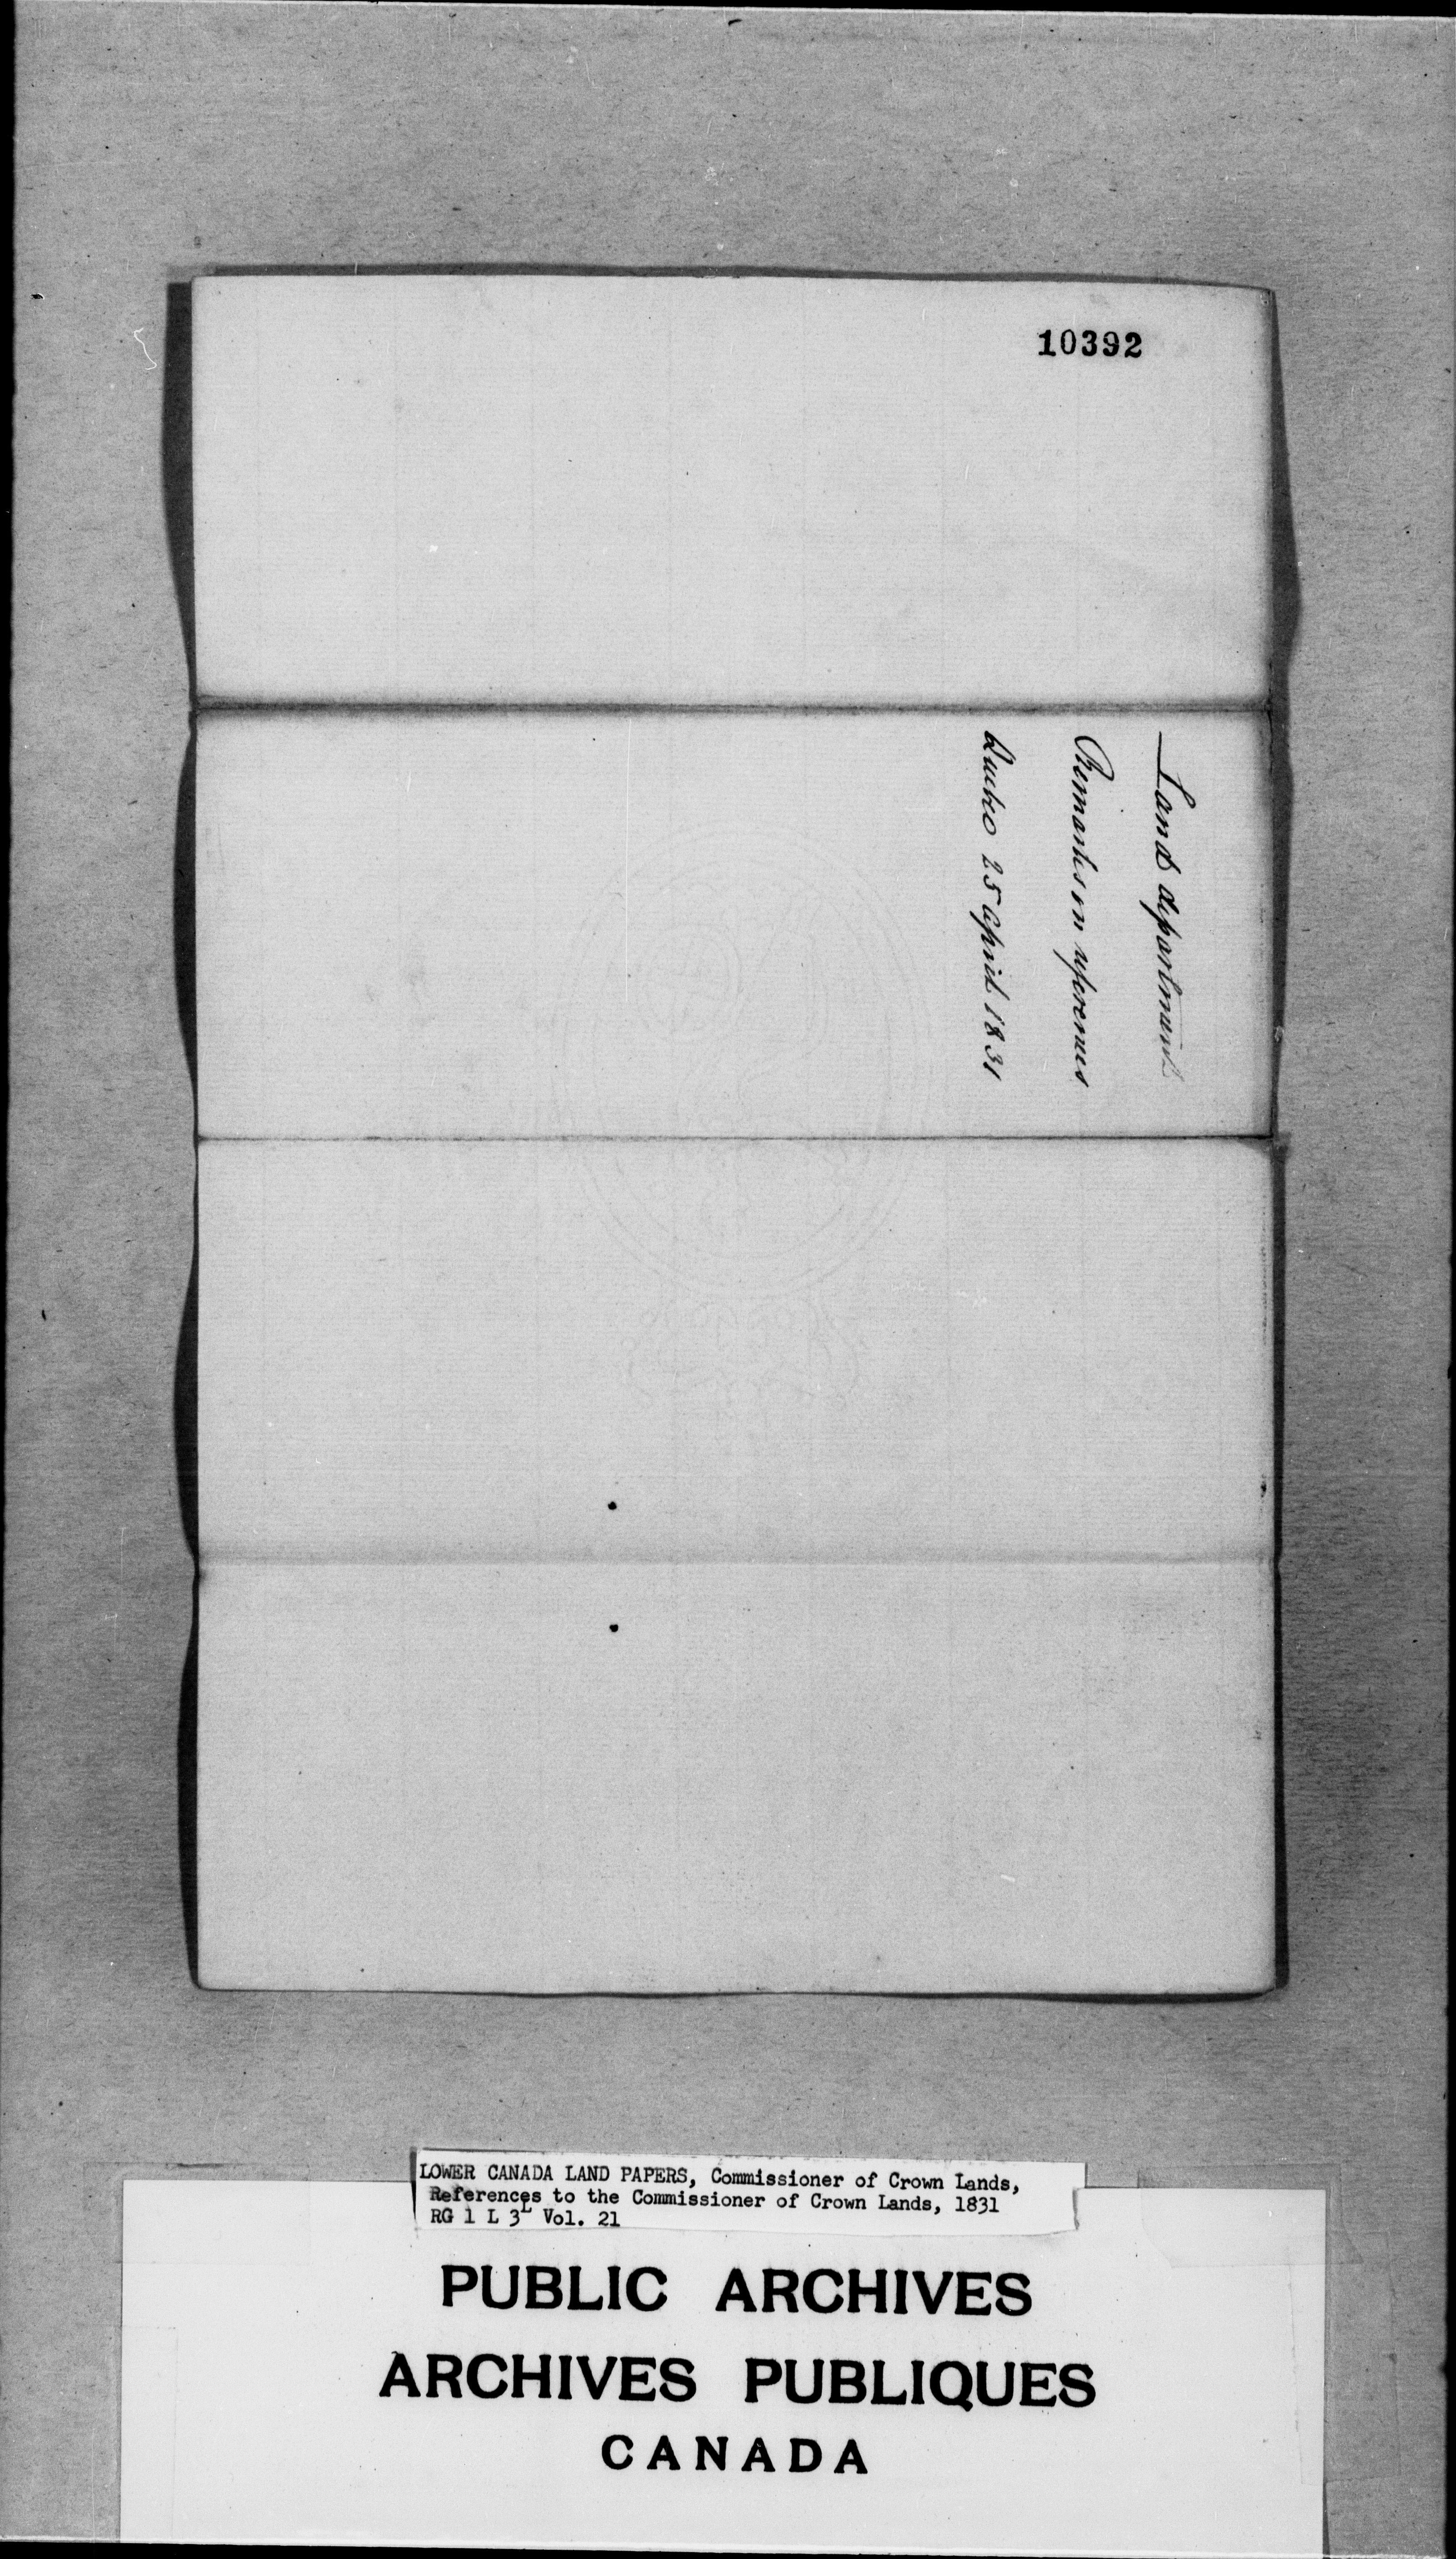 10392
Land department
Remarks on references
Quebec 25 April 1831
LOWER CANADA LAND PAPERS, Commissioner of Crown Lands,
References to the Commissioner of Crown Lands, 1831
RG 1 L 3L Vol. 21
PUBLIC ARCHIVES
ARCHIVES PUBLIQUES
CANADA